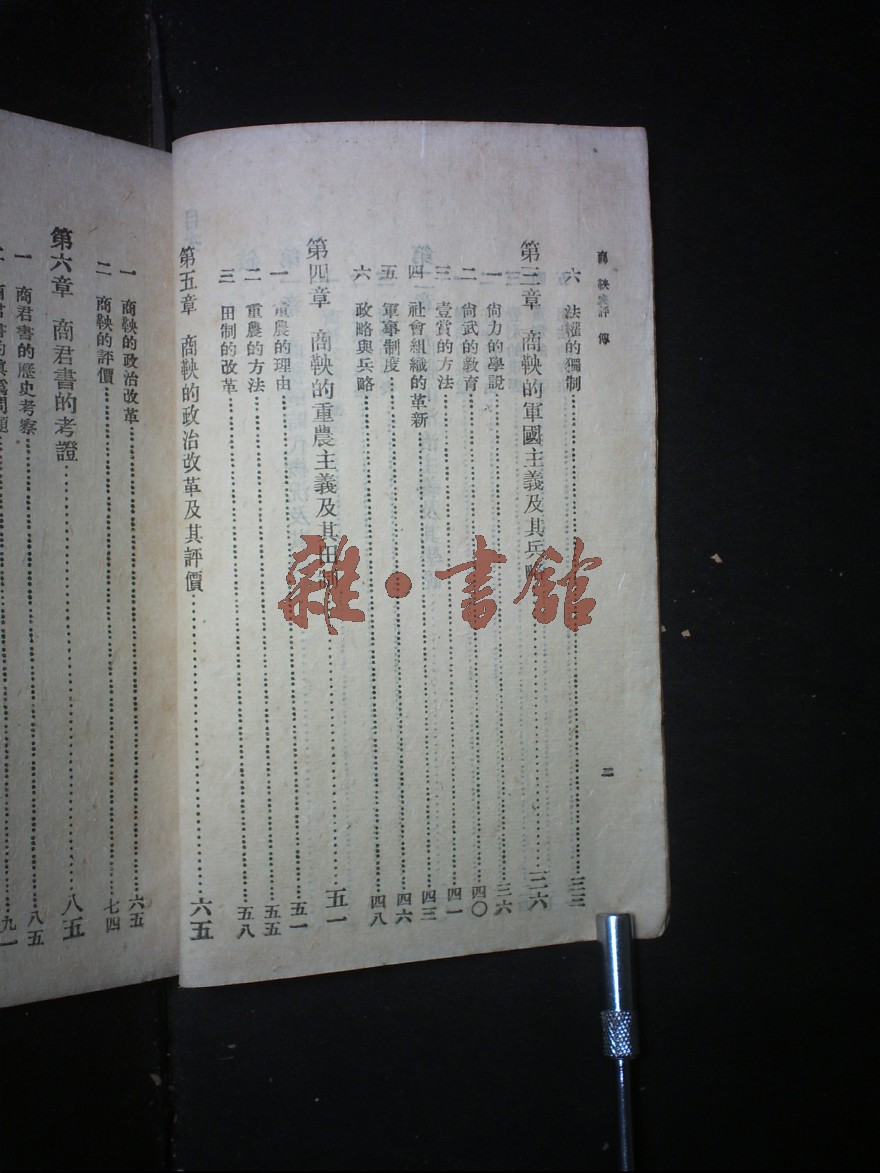 商鞅評傳
二
六 法權的獨制 三三
第三章 商鞅的軍國主義及其兵略 三六
一 尙力的學說 三六
二 尙武的敎育 四〇
三 壹賞的方法 四一
四 社會組織的革新 四三
五 軍事制度 四六
六 政略與兵略 四八
第四章 商鞅的重農主義及其田制 五一
一 重農的理由 五一
二 重農的方法 五五
三 田制的改革 五八
第五章 商鞅的政治改革及其評價 六五
一 商鞅的政治改革 六五
二 商鞅的評價 七四
第六章 商君書的考證 八五
一 商君書的歷史考察 八五
二 商君書的眞僞問題 九一
雜·書館